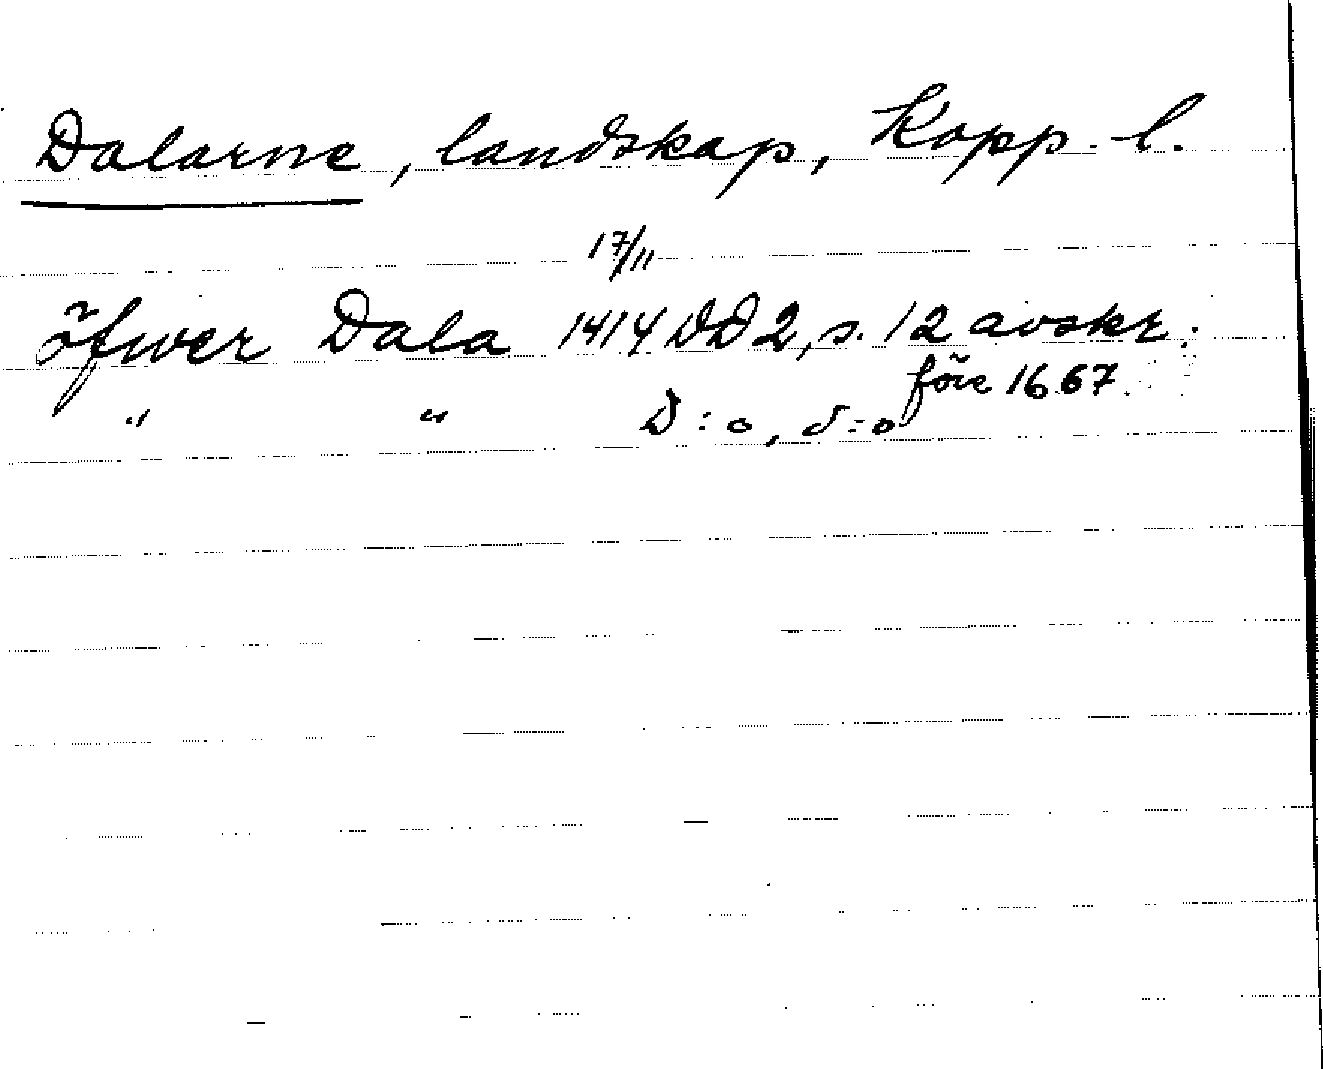 Dalarne, landskap, Kopp. l.
17/11
öfwer Dala 1414 DD2, s. 12 avskr.
före 1667.
" " D:o, d:o